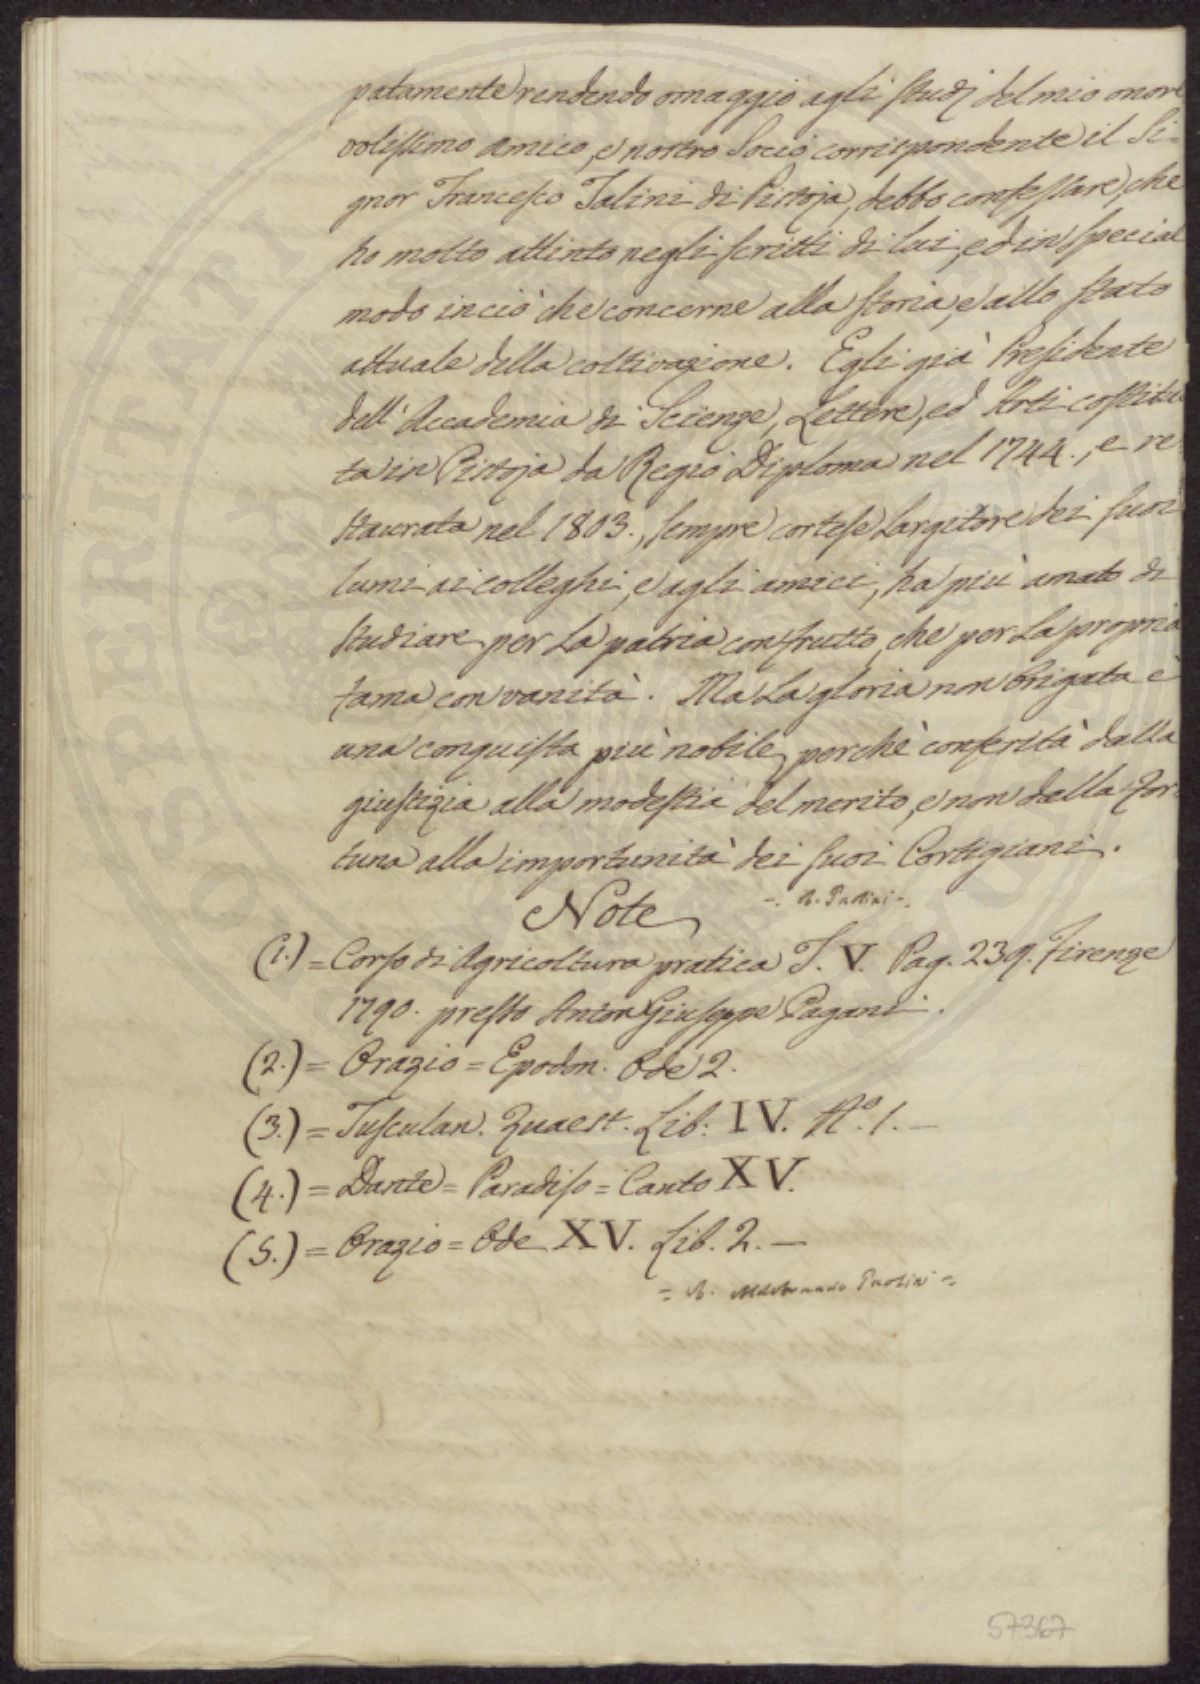 patamente rendendo omaggio agli studj del mio onore
volissimo amico, e nostro Socio corrispondente il Si=
gnor Francesco Talini di Pistoja, debbo confessare, che
ho molto attinto negli scritti di lui, ed in special
modo in ciò che concerne alla storia, e allo stato
attuale della coltivazione. Egli già Presidente
dell'Accademia di Scienze, Lettere, ed Arti costitui
ta in Pistoja da Regio Diploma nel 1744., e re
staurata nel 1803., sempre cortese Largitore dei suoi
lumi ai colleghi, e agli amici, ha più amato di
studiare per La patria con frutto, che per La propria
fama con vanità. Ma La gloria non brigata è
una conquista più nobile, perchè conferita dalla
giustizia alla modestia del merito, e non dalla For
tuna alla importunità dei suoi Cortigiani.
=. A. Paolini =.
Note
(1.) = Corso di Agricoltura pratica T. V. Pag. 239. Firenze
1790. presso Anton Giuseppe Pagani.
(2.) = Orazio = Epodon. Ode 2.
(3.) = Tusculan. Quaest. Lib: IV. N.º 1. —
(4.) = Dante = Paradiso = Canto XV.
(5.) = Orazio = Ode XV. Lib. 2. —
= A. Aldobrando Paolini =.
57367
PROSPERITATI